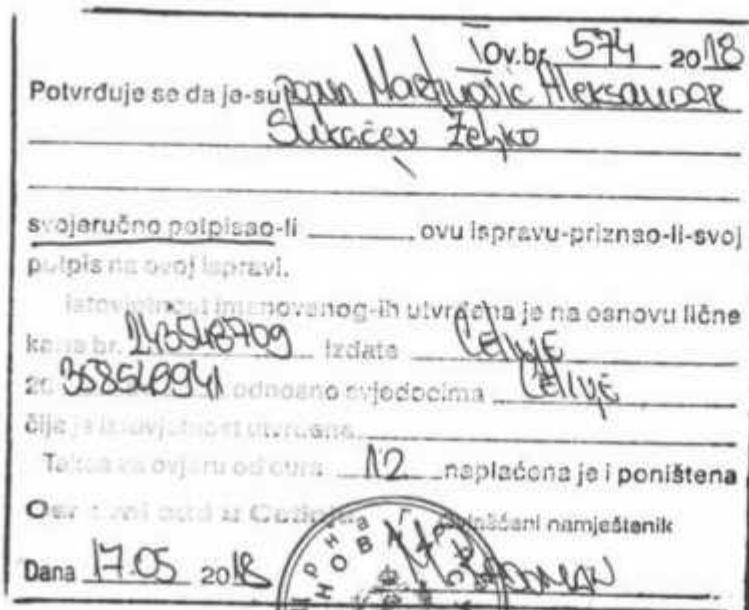 IOv.br. 574 2018
Potvrđuje se da je-su Martinović Aleksandar
Sukačev Željko
svojeručno potpisao-li ovu ispravu-priznao-li-svoj
potpis na ovoj ispravi.
Istovjetnost imenovanog-ih utvrđena je na osnovu lične
karte br. 243548709 izdate Cetinje
20 358548941 odnosno svjedocima Cetinje
čija je istovjetnost utvrđena
Taksa za ovjeru od eura 12 naplaćena je i poništena
Osnovni sud u Cetinju Ovlašćeni namještenik
Dana 17.05 2018